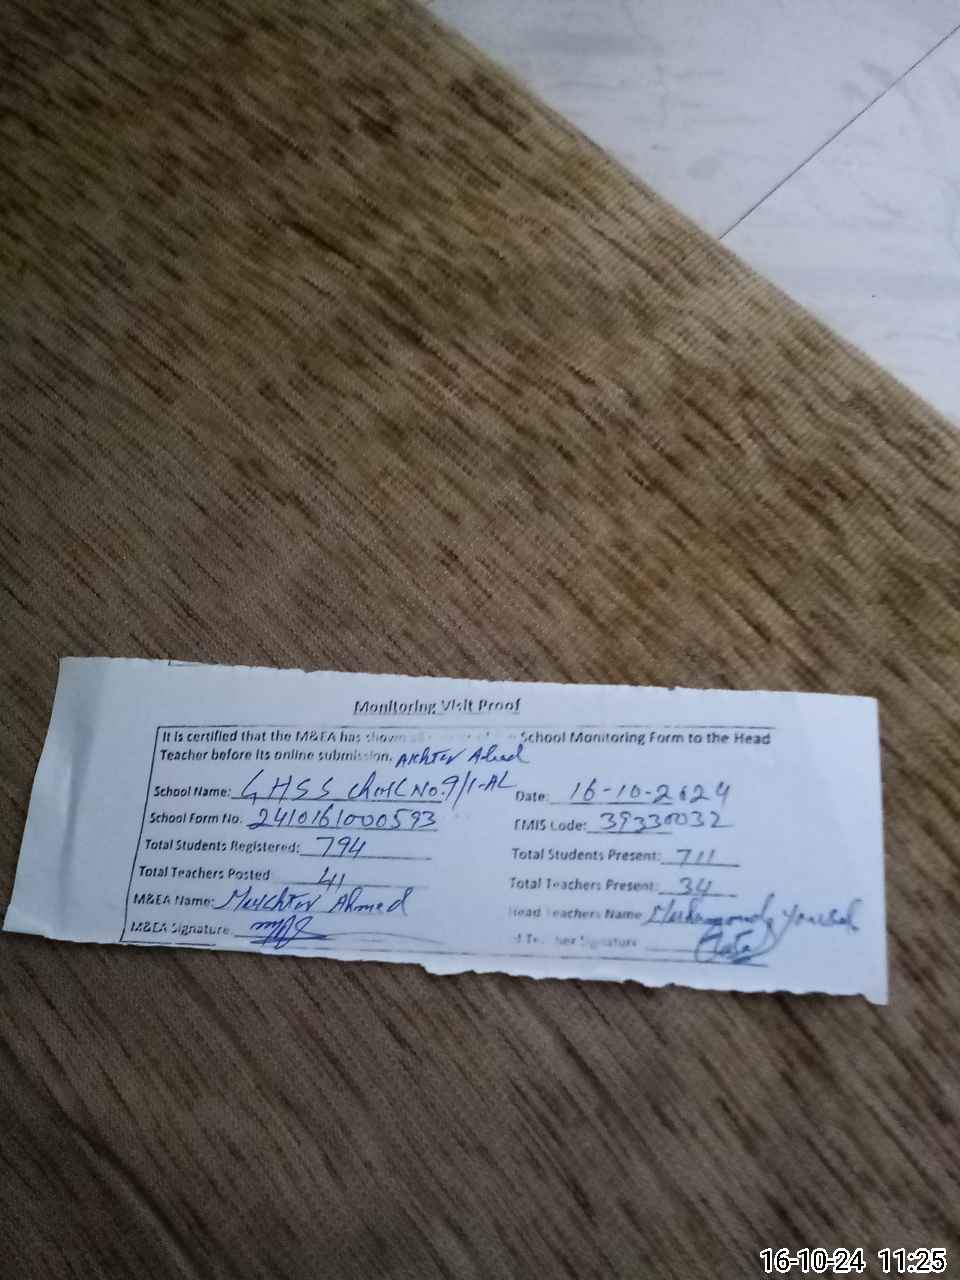 Monitoring Visit Proof
It is certified that the M&EA has shown School Monitoring Form to the Head
Teacher before its online submission.
School Name: GHSS Chak No. 9/1-AL Date: 16-10-2024
School Form No. 2410161000593 EMIS Code: 39330032
Total Students Registered: 794 Total Students Present: 711
Total Teachers Posted 41 Total Teachers Present: 34
M&EA Name: Ahmed Head Teachers Name
M&EA Signature Signature
16-10-24 11:25